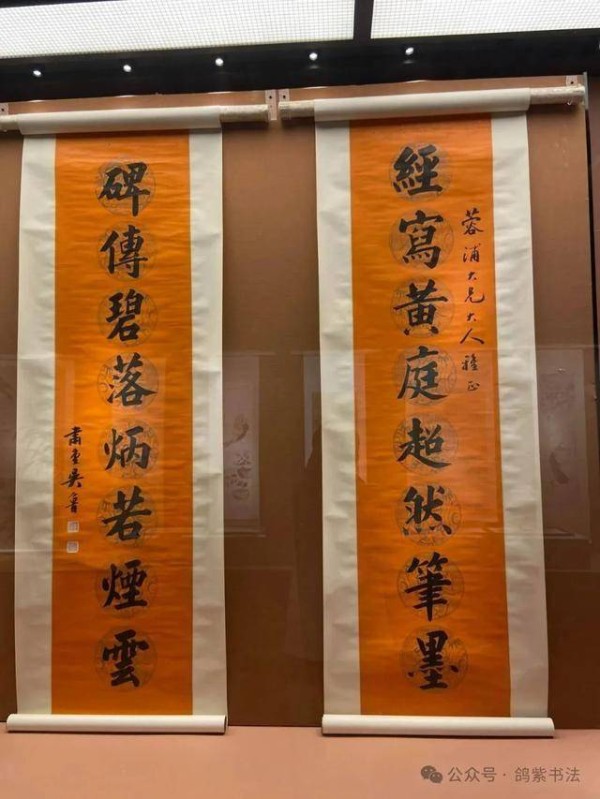 經寫黃庭超然筆墨
蓉浦大兄大人雅正
碑傳碧落炳若煙雲
肅堂吳魯
公众号·鸽紫书法